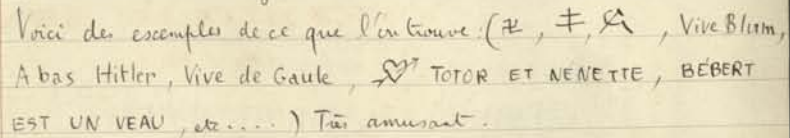 Voici des escemples de ce que l'on trouve : (卍, ‡, ☭, Vive Blum,
A bas Hitler, Vive de Gaule, 💘 TOTOR ET NENETTE, BÉBERT
EST UN VEAU, etc....) Très amusant.